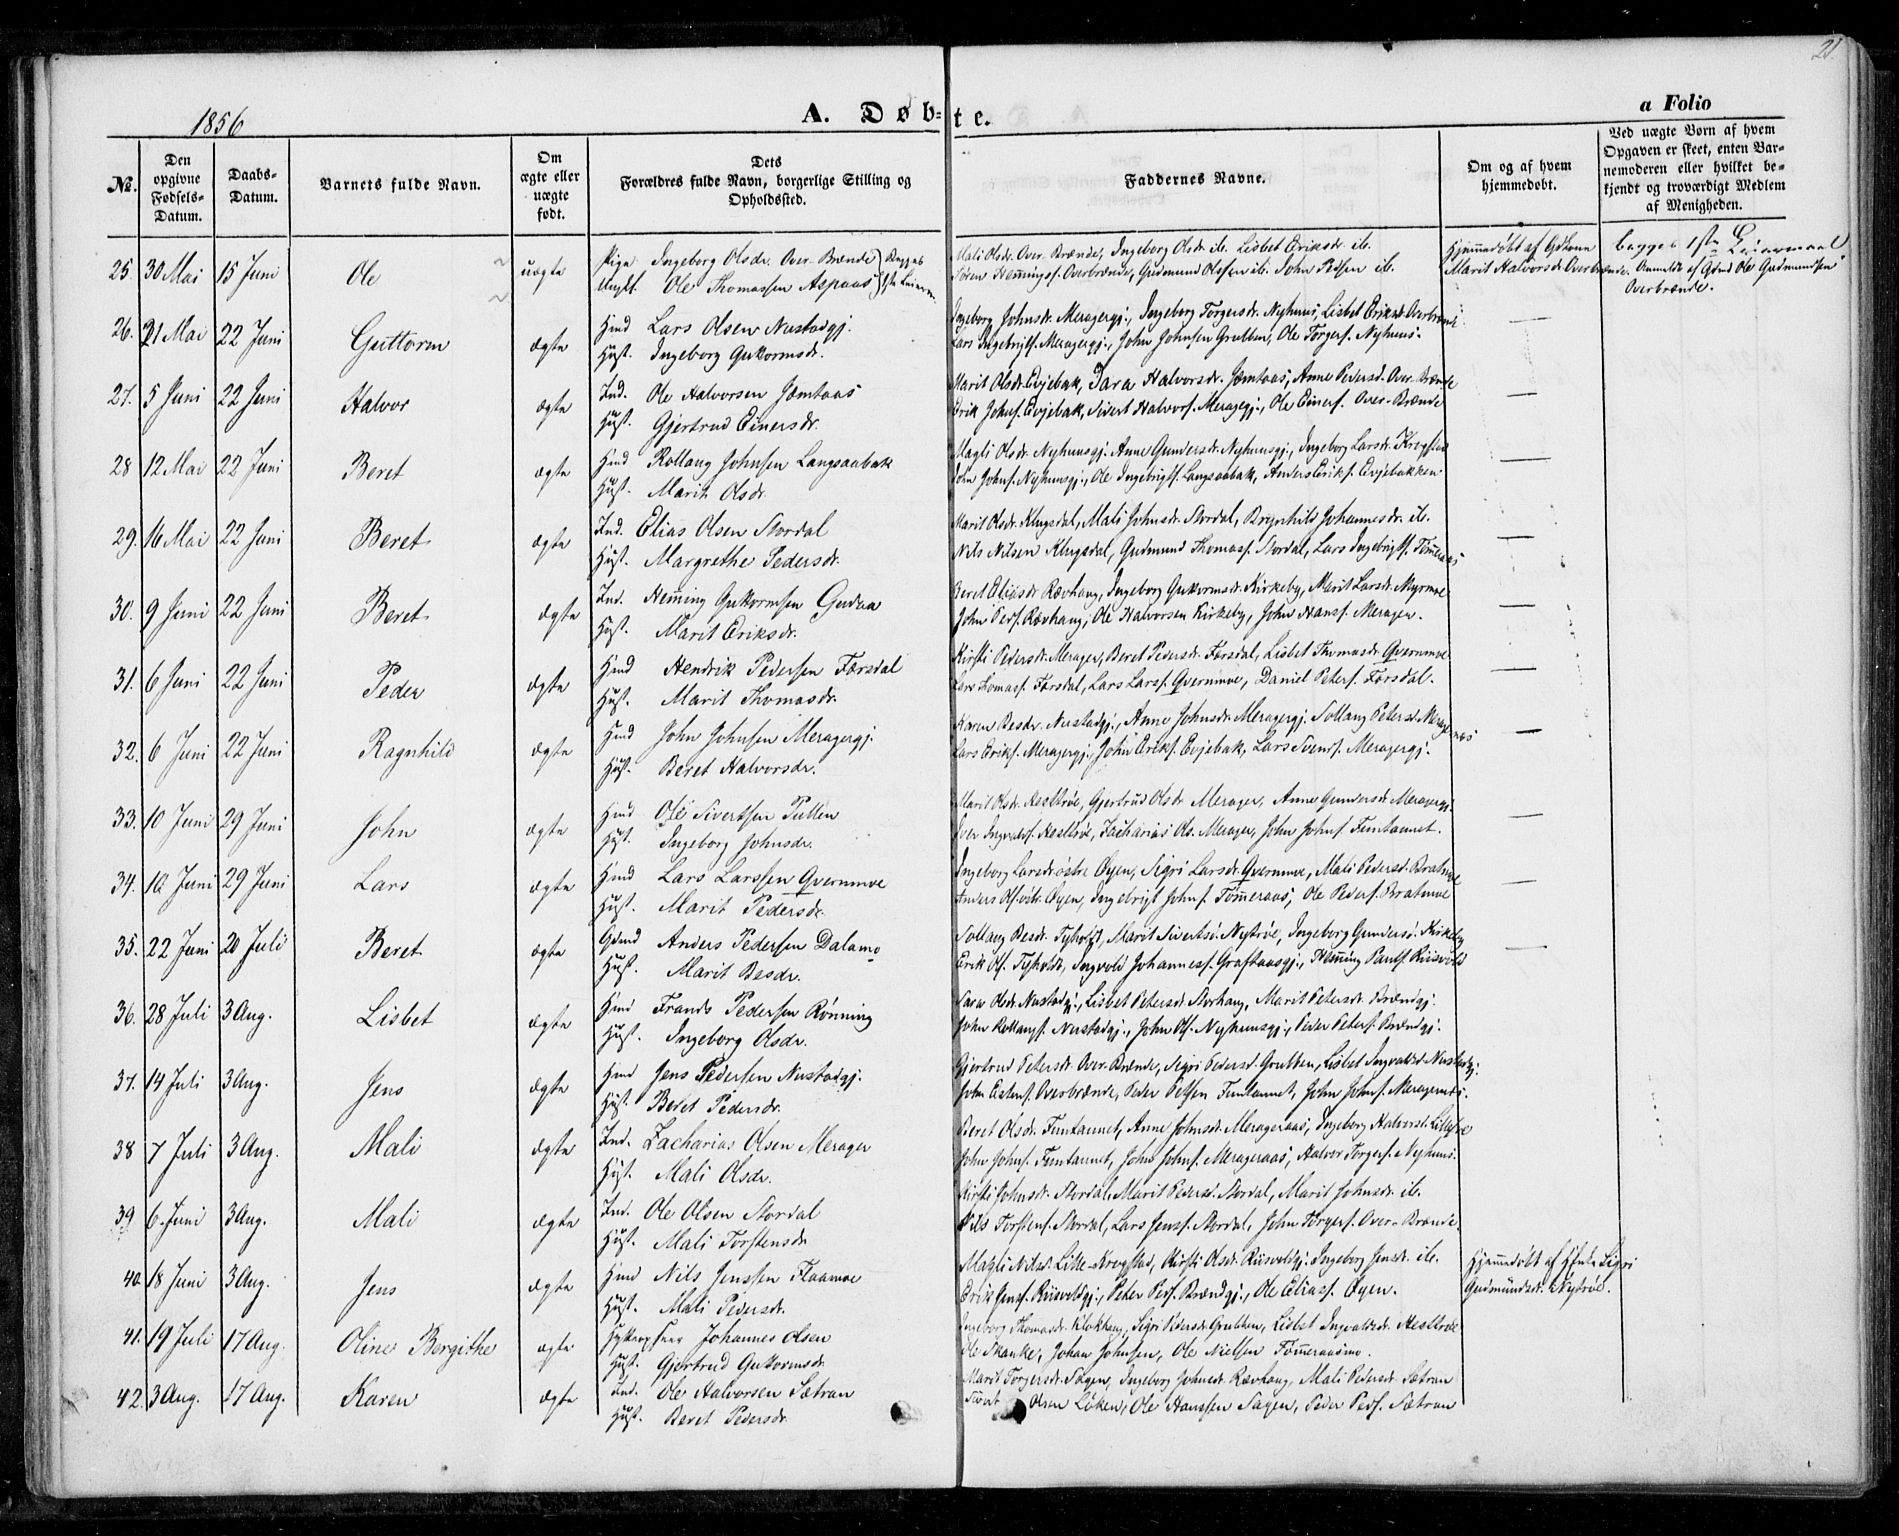 20.
1856
A. Døb-te.
a Folio
No.
Den opgivne Fødsels-Datum.
Daabs-Datum.
Barnets fulde Navn.
Om ægte eller uægte født.
Dets Forældres fulde Navn, borgerlige Stilling og Opholdssted.
Faddernes Navne.
Om og af hvem hjemmedøbt.
Ved uægte Børn af hvem Opgaven er skeet, enten Barnemoderen eller hvilket bekjendt og troværdigt Medlem af Menigheden.
25. 30 Mai 15 Juni Ole uægte Pige Ingeborg Olsdr. Over-Brænde Begges
Ungk. Ole Thomassen Aspaas 1ste Leierm.
Mali Olsdr. Over-Brænde, Ingeborg Olsdr. ib. Lisbet Eriksdr. ib.
Søren Hemingsf. Overbrænde, Gudmund Olssen ib. John Petssen ib.
Hjemmedøbt af Gdkone
Marit Halvorsdr. Overbrænde.
begges 1ste Leiermaal
Anmeldt af Gdmd Ole Gudmundsen
Overbrænde.
26. 21 Mai 22 Juni Guttorm ægte Hmd Lars Olsen Nustadgj.
Hust. Ingeborg Guttormsdr.
Ingeborg Johnsdr. Meragergj., Ingeborg Torgersdr. Nyhuus, Lisbet Eriksdr. Overbrænde
Lars Ingebrigtsf. Meragergj., John Johnsen Grubben, Ole Torgersf. Nyhuus.
—
27. 5 Juni 22 Juni Halvor ægte Ind. Ole Halvorsen Jæmtaas
Hust. Gjertrud Einersdr.
Marit Olsdr. Evjebak, Sara Halvorsdr. Jæmtaas, Anne Pedersd. Over-Brænde
Erik Johnsf. Evjebak, Sivert Halvorsf. Meragergj., Ole Einersf. Over-Brænde
—
28 12 Mai 22 Juni Beret ægte Hmd Rollaug Johnsen Langsaabak
Hust. Marit Olsdr.
Magli Olsdr. Nyhuusgj. Anne Gundersdr. Nyhuusgj., Ingeborg Larsdr. Krogstad
John Johnsf. Nyhuusgj., Ole Ingebrigtsf. Langsaabak, Anders Eriksf. Evjebakken
—
29. 16 Mai 22 Juni Beret ægte Ind. Elias Olsen Stordal
Hust. Margrethe Pedersdr.
Marit Olsdr. Klugsdal, Mali Johnsdr. Stordal, Brynhild Johannesdr. ib.
Nils Nilsen Klugsdal, Gudmund Thomasf. Stordal, Lars Ingebrigtsf. Tømmeraas
—
30. 9 Juni 22 Juni Beret ægte Ind. Heming Guttormsen Gudaa
Hust. Marit Eriksdr.
Beret Eliasdr. Rævhaug, Ingeborg Guttormsdr. Kirkeby, Marit Larsdr. Myrmoe
John Pedsf. Rævhaug, Ole Halvorsen Kirkeby, John Hansf. Merager.
—
31. 6 Juni 22 Juni Peder ægte Hmd Hendrik Pedersen Færsdal
Hust. Marit Thomasdr.
Kirsti Pedersdr. Merager, Beret Pedersdr. Færsdal, Lisbet Thomasdr. Qvernmoe
Lars Thomasf. Færsdal, Lars Larsf. Qvernmoe, Daniel Petersf. Færsdal.
—
32. 6 Juni 22 Juni Ragnhild ægte Hmd John Johnsen Meragergj.
Hust. Beret Halvorsdr.
Karen Besdr. Nustadgj., Anne Johnsdr. Meragergj. Sollaug Petersd. Merageraas
Lars Eriksf. Meragergj., John Eriksf. Evjebak, Lars Svendsf. Meragergj.
—
33. 10 Juni 29 Juni John ægte Hmd Ole Sivertsen Tullen
Hust. Ingeborg Johnsdr.
Marit Olsdr. Hestlrøe, Gjertrud Olsdr. Merager, Anne Gundersdr. Meragergj.
Iver Ingvaldsf. Hestlrøe, Zacharias Ols. Merager, John Johnsf. Funtaunet.
—
34. 10. Juni 29 Juni Lars ægte Hmd Lars Larssen Qvernmoe
Hust. Marit Pedersdr.
Ingeborg Larsdr. østre Øyen, Sigri Larsdr. Qvernmoe, Mali Pedersd. Bratmoe
Anders Olsf. østr. Øyen, Ingebrigt Johnsf. Tømmeraas, Ole Pedersf. Bratmoe
—
35. 22 Juni 20 Juli Beret ægte Gdmd Anders Pedersen Dalamo
Hust. Marit Besdr.
Sollaug Besdr. Tyholdt, Marit Sivertsd. Nytrøe, Ingeborg Gundersd. Kirkeby
Erik Olsf. Tyholdt, Ingvold Johannesf. Graftaasgj., Heming Paulsf. Riisvold
—
36. 28 Juli 3 Aug. Lisbet ægte Hmd Frands Pedersen Rønning
Hust. Ingeborg Olsdr.
Sara Olsdr. Nustadgj., Lisbet Petersdr. Storhaug, Marit Petersdr. Brændgj.
John Rollaugsf. Nustadgj., John Olsf. Nyhuusgj., Peder Petersf. Brændgj.
37. 14 Juli 3 Aug. Jens ægte Hmd Jens Pedersen Nustadgj.
Hust. Beret Pedersdr.
Gjertrud Petersdr. Over-Brænde, Sigri Pedersd. Grubben, Lisbet Ingvaldsd. Nustadgj.
John Estensf. Overbrænde, Peder Petssen Funtaunet, John Johnsf. Merageraas.
38 7 Juli 3 Aug. Mali ægte Ind. Zacharias Olsen Merager
Hust. Mali Olsdr.
Beret Olsdr. Funtaunet, Anne Johnsdr. Merageraas, Ingeborg Halvorsd.
John Johnsf. Funtaunet, John Johnsf. Merageraas, Halvor Torgersf. Nyhuus.
39 6. Juni 3 Aug. Mali ægte Ind. Ole Olsen Stordal
Hust. Mali Torstensdr.
Kirsti Johnsdr. Stordal, Marit Pedersd. Stordal, Marit Johnsdr. ib.
Nils Torstensf. Stordal, Lars Jensf. Stordal, John Torgersf. Over-Brænde.
40. 18 Juni 3 Aug. Jens ægte Hmd Nils Jenssen Flaamoe
Hust. Mali Pedersdr.
Magli Nilsd. Lille-Krogstad, Kirsti Olsdr. Riisvoldgj. Ingeborg Jensdr. ib.
Erik Jensf. Riisvoldgj., Peter Pedsf. Brændgj., Ole Eliasf. Øyen.
Hjemmedøbt af Sigri
Gudmundsdr. Nytrøe.
41. 19 Juli 17 Aug. Oline Bergithe ægte Johannes Olsen
Hust. Gjertrud Guttormsdr.
Ingeborg Thomasdr. Klokhaug, Sigri Pedersdr. Grubben, Lisbet Ingvaldsdr. Hestlrøe
Ole Skanke, Johan Johnsen, Ole Nielsen Tømmeraasmo.
42. 3 Aug. 17 Aug. Karen ægte Ind. Ole Halvorsen Sætran
Hust. Beret Pedersdr.
Marit Torgersdr. Fagen, Ingeborg Johnsdr. Rævhaug, Mali Pedersdr. Sætran
Sivert Olsen Løken, Ole Hanssen Fagen, Peder Pedsf. Sætran